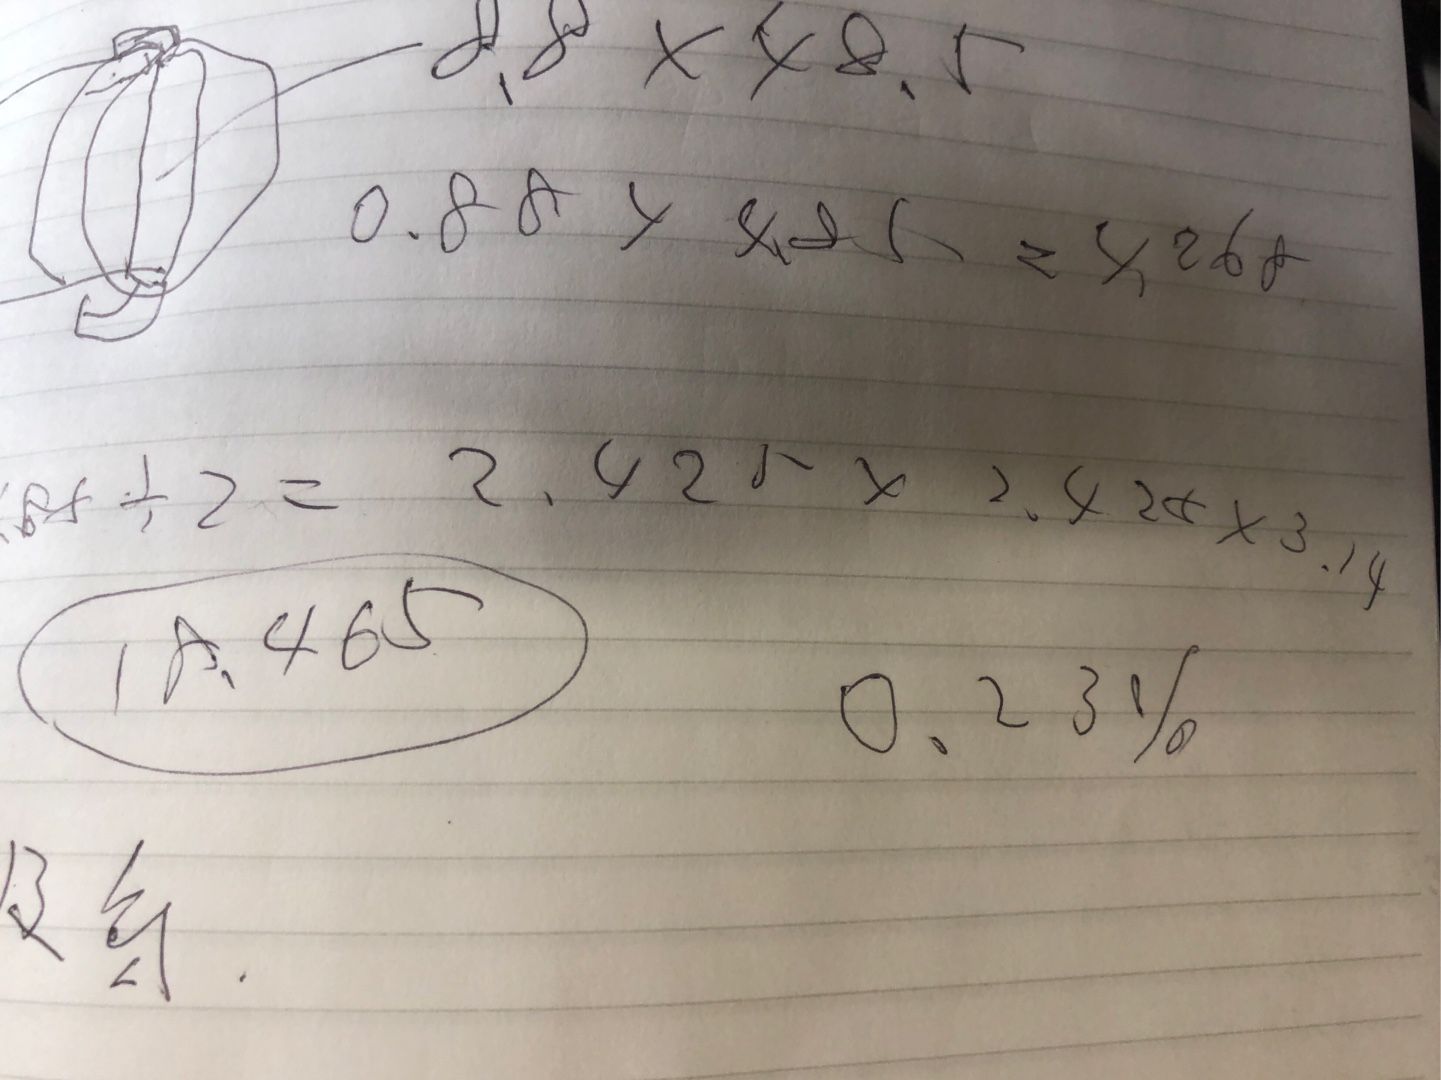 8.8 × 48.5
0.88 × 4.85 = 4.268
.85 ÷ 2 = 2.425 × 2.425 × 3.14
18.465
0.231%